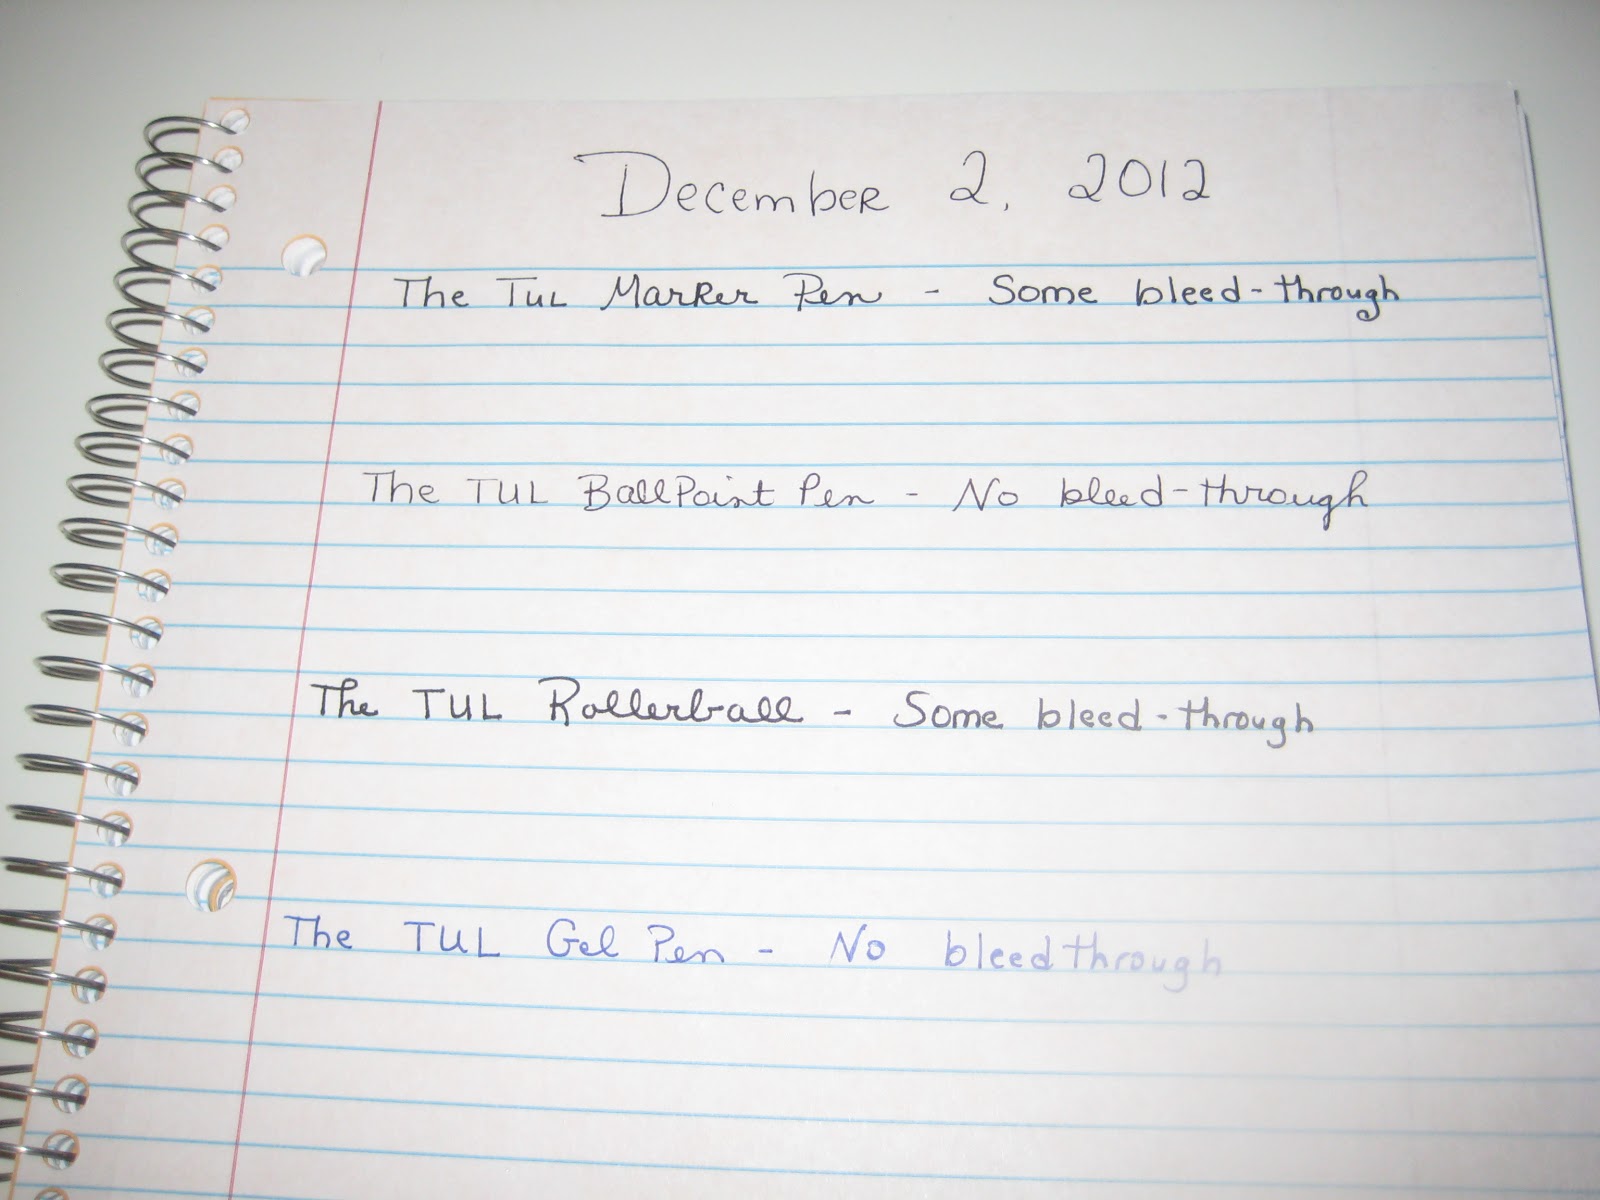 December 2, 2012
The TUL Marker Pen - Some bleed-through
The TUL BallPoint Pen - No bleed-through
The TUL Rollerball - Some bleed-through
The TUL Gel Pen - No bleedthrough